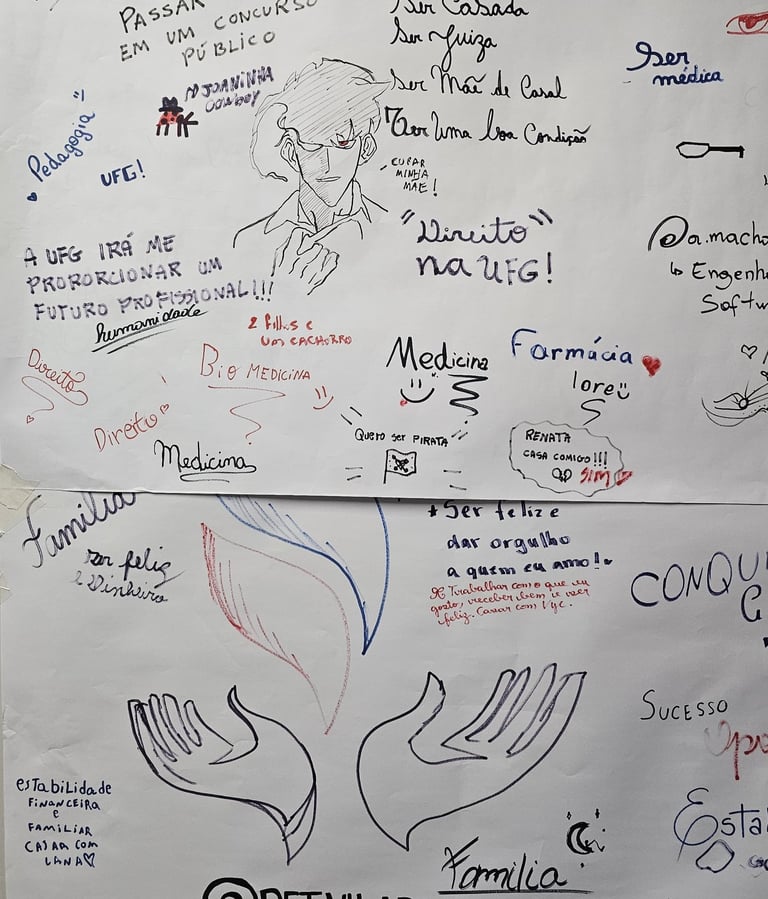 PASSAR
EM UM CONCURSO
PÚBLICO
Ser Casada
Ser Juiza
Ser Mãe de Casal
Ter Uma boa Condição
Ser
médica
JOANINHA
COWBOY
Pedagogia
UFG!
CUPAR
MINHA
MÃE!
"Direito"
na UFG!
@a.macho
Engenh
Softw
A UFG IRÁ ME
PROPORCIONAR UM
FUTURO PROFISSIONAL!!!
humanidade
2 filhos e
um CACHORRO
Direito
Direito
BIOMEDICINA
Medicina
Medicina
Farmácia
lore
QUERO SER PIRATA
RENATA
CASA COMIGO!!!
SIM
Familia
ser feliz
e Dinheiro
* Ser feliz e
dar orgulho
a quem eu amo!
Trabalhar com o que eu
gosto, receber bem e ser
feliz. Casar com
CONQU
SUCESSO
estabilidade
FINANCEIRA
e
FAMILIAR
CASAR COM
LANA
Esta
Familia